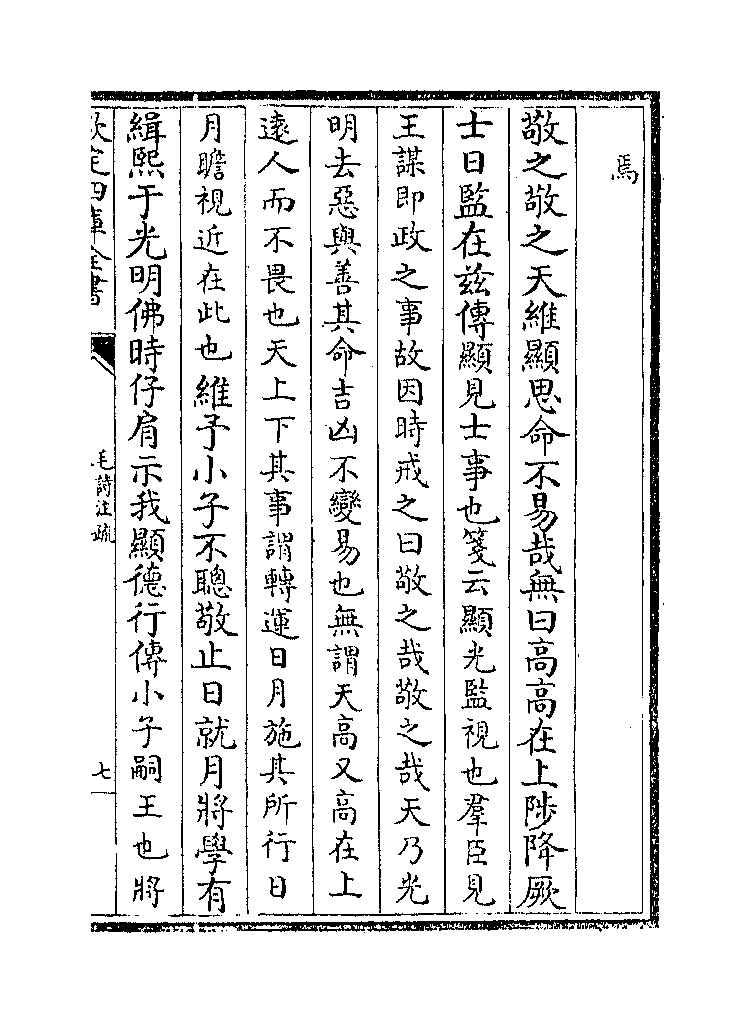 焉
敬之敬之天維顯思命不易哉無曰高高在上陟降厥
士日監在兹傳顯見士事也箋云顯光監視也羣臣見
王謀即政之事故因時戒之曰敬之哉敬之哉天乃光
明去惡與善其命吉凶不變易也無謂天高又高在上
逺人而不畏也天上下其事謂轉運日月施其所行日
月瞻視近在此也維予小子不聰敬止日就月將學有
緝熙于光明佛時仔肩示我顯德行傳小子嗣王也將
欽定四庫全書
毛詩注疏
七